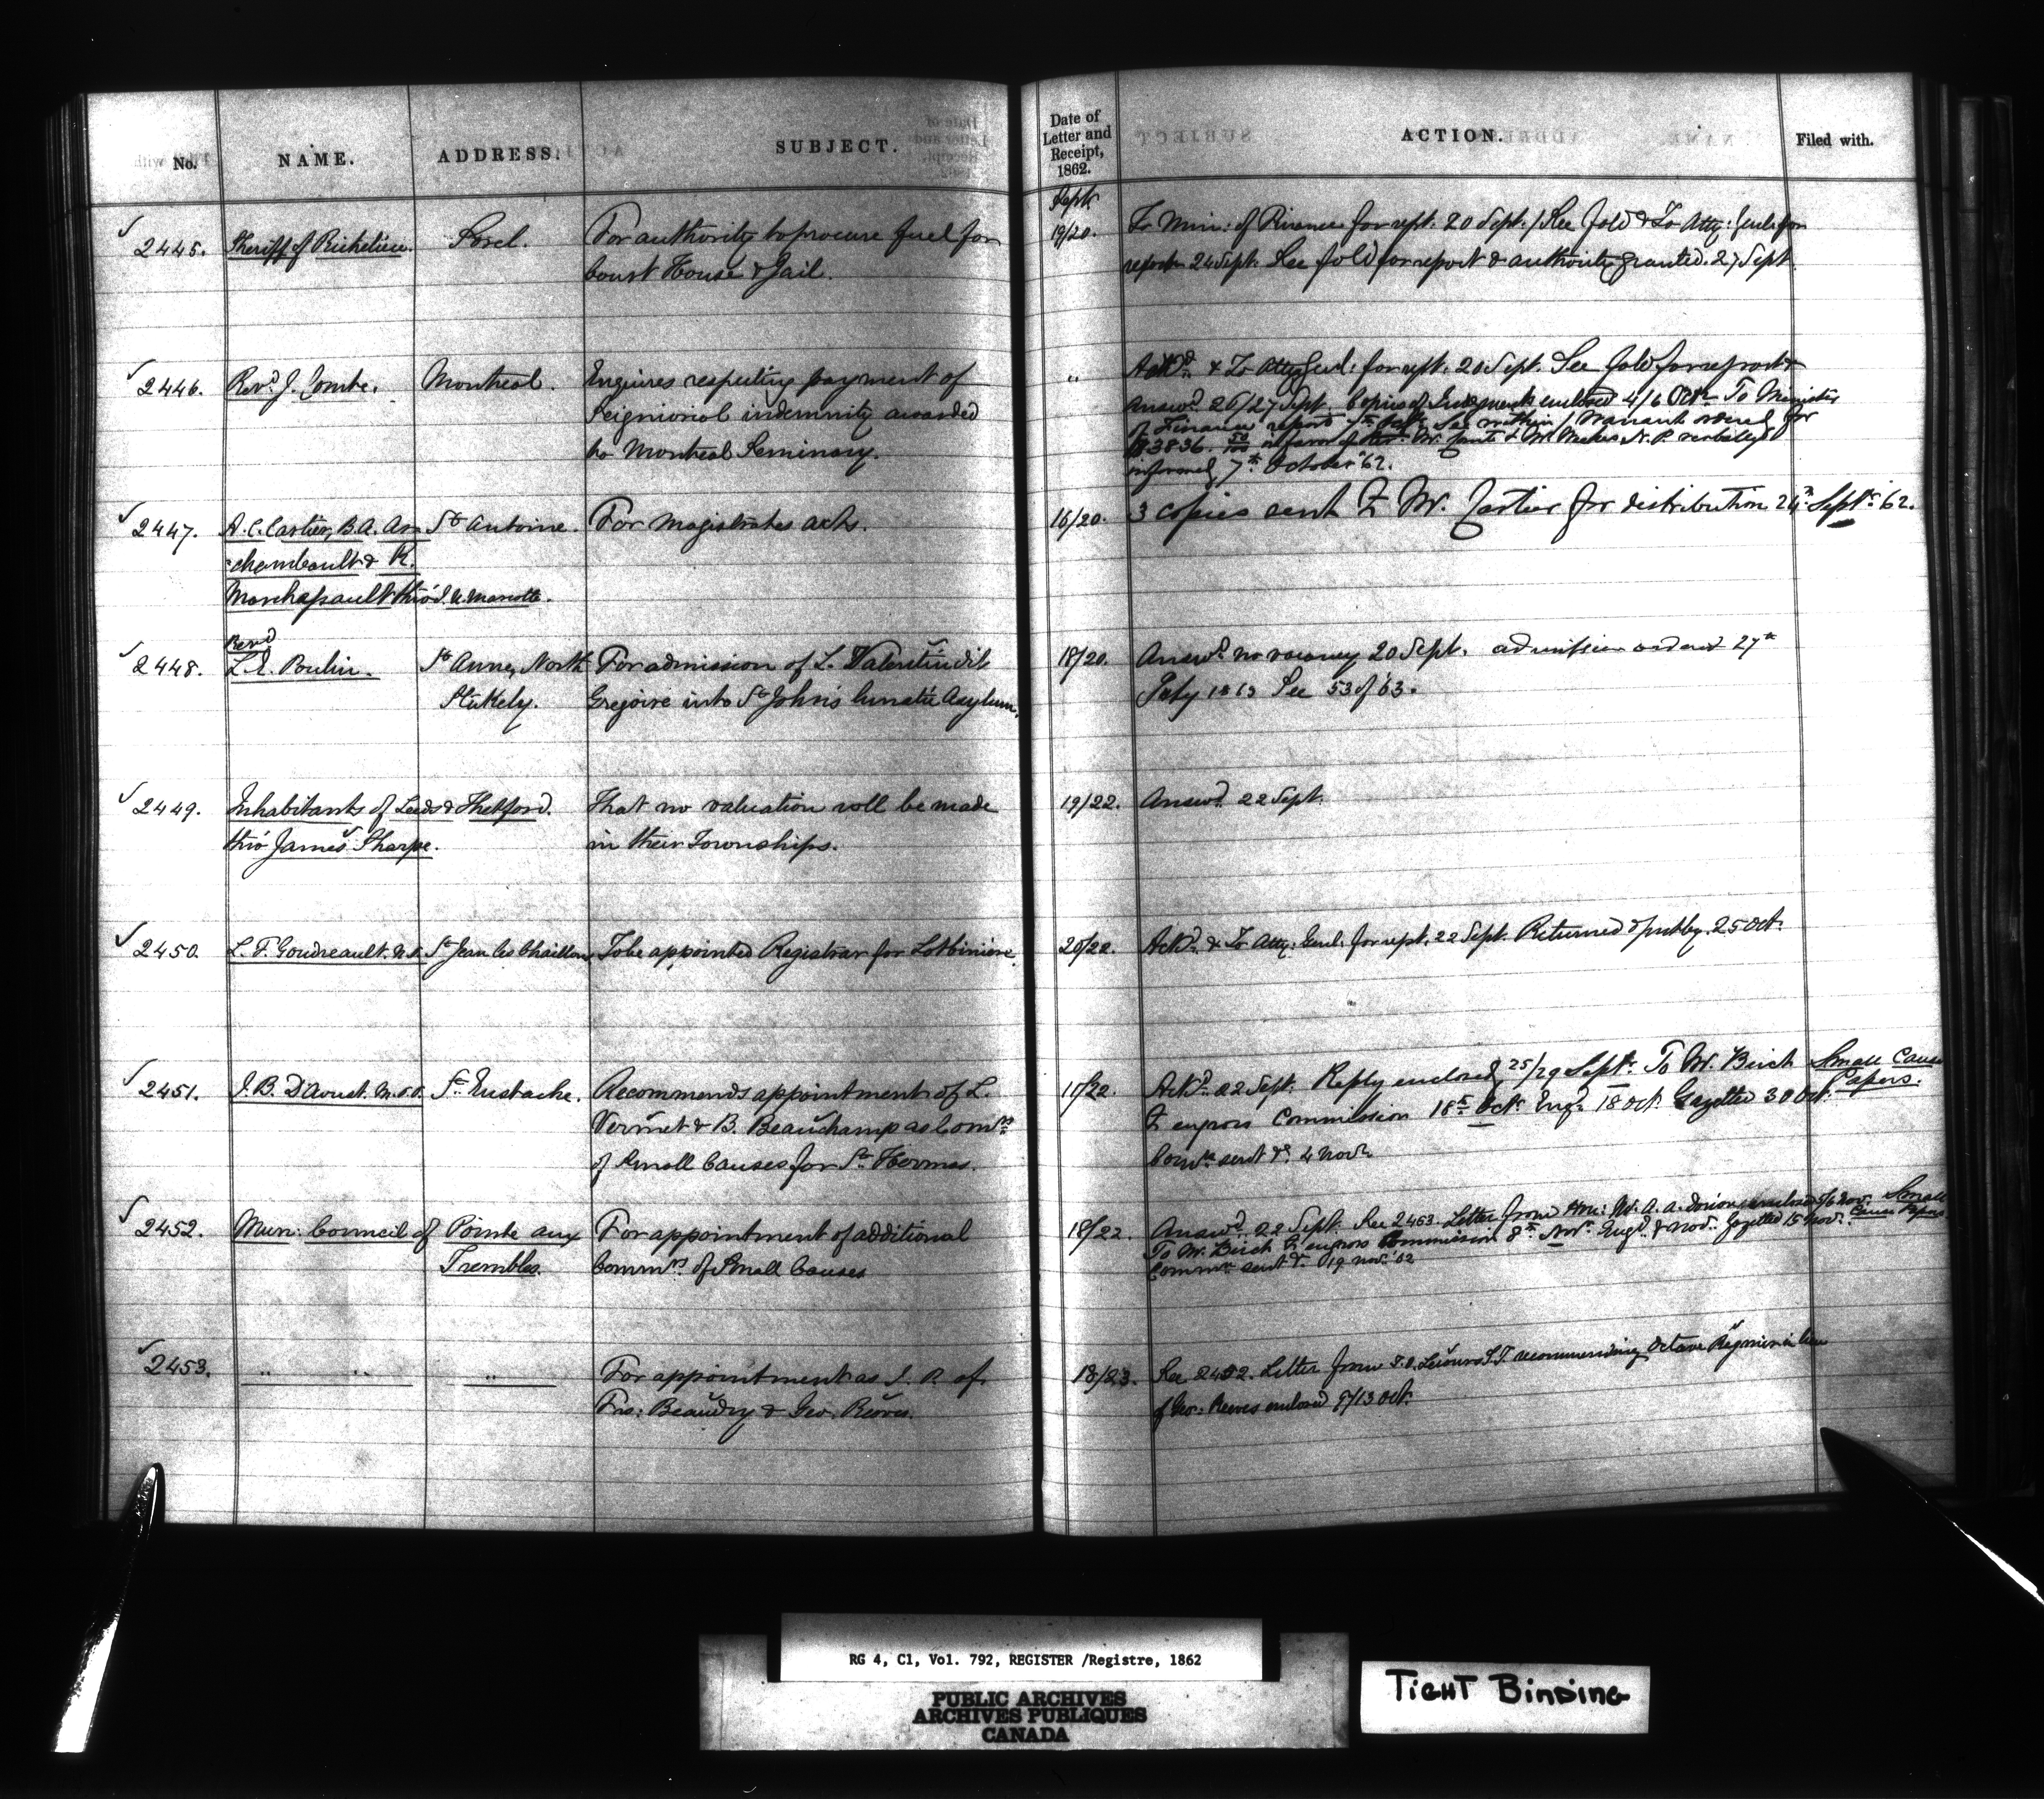 No. NAME. ADDRESS. SUBJECT. Date of Letter and Receipt, 1862. ACTION. Filed with.
Sept.
2445. Sheriff of Richelieu. Sorel. For authority to procure fuel for 19/20. To Min: of Finance for rept. 20 Sept. / See fold & To Atty: Genl: for
Court House & Jail. report 24 Sept. See fold for report & authority granted. 27 Sept.
2446. Revd. J. Montreal. Enquires respecting payment of " Ackd. & To Atty Genl: for rept. 20 Sept. See fold for report &
Seigniorial indemnity awarded Answd. 26/27 Sept. Copies of enclosed 4/6 Octr. To Minister
to Montreal Seminary. of Finance report 7th Octr. See within / Warrant ordered for
in favor of N. P. verbally
informed 7th October '62.
2447. A. C. Cartier, B. A. Ar- St. Antoine. For Magistrates acts. 16/20. 3 copies sent to Mr. Cartier for distribution 24th Septr. '62.
chambault & R.
Marchessault thro' J. N. Marcotte.
Revd
2448. L. E. Poulin. St. Anne, North For admission of L. Valentin dit 18/20. Answd. no vacancy 20 Sept. admission ordered 27th
Stukely. Gregoire into St. John's Lunatic Asylum. July 1863 See 53 of '63.
2449. Inhabitants of Leeds & Thetford. That no valuation roll be made 19/22. Answd. 22 Sept.
thro' James Sharpe. in their Townships.
2450. L. F. Goudreault. N.P. St. Jean des Chaillons To be appointed Registrar for Lotbiniere. 20/22. Ackd. & To Atty: Genl. for rept. 22 Sept. Returned & putby. 25 Oct.
2451. J. B. Daoust. M.P.P. St. Eustache. Recommends appointment of L. 15/22. Ackd. 22 Sept. Reply enclosed 25/29 Septr. To Mr. Birch Small Cause
Vermet & B. Beauchamp as Comrs. to engross Commission 18th Octr. Engd. 18 Oct. Gazetted 30 Oct. Papers.
of Small Causes for St. Hermas. Comn. sent &c. 4 Novr.
2452. Mun: Council of Pointe aux For appointment of additional 18/22 Answd. 22 Sept. See 2453. Letter from Hon: Mr. A. A. Dorion enclosed 5/6 Nov. Small
Trembles. Commrs. of Small Causes To Mr. Birch to engross Commission 8th Novr. Engd. 8 Nov. Gazetted 15 Nov. Cause Papers
Commn. sent &c. 19 Nov. '62
2453. " " " For appointment as J. P. of 18/23. See 2452. Letter from recommending Octave Reginer in lieu
Frs: Beaudry & Geo. Reeves. of Geo: Reeves enclosed 9/13 Oct.
RG 4, C1, Vol. 792, REGISTER /Registre, 1862
PUBLIC ARCHIVES
ARCHIVES PUBLIQUES
CANADA
TIGHT BINDING